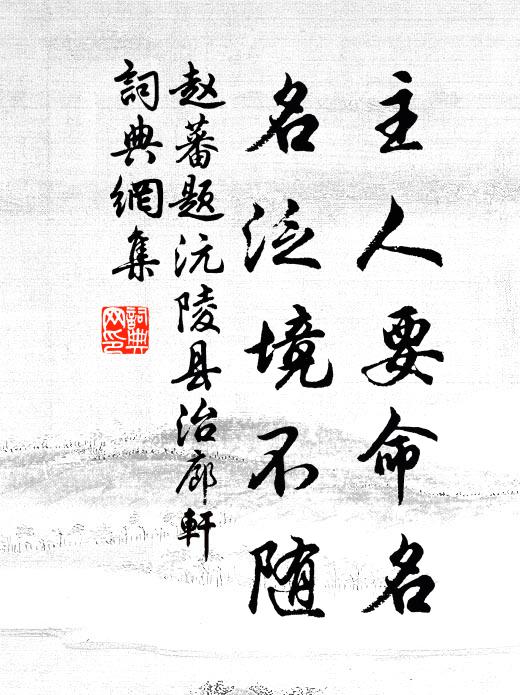 主人要命名
名泛境不随
赵蕃题沅陵县治廊轩
詞典網集
詞典网印